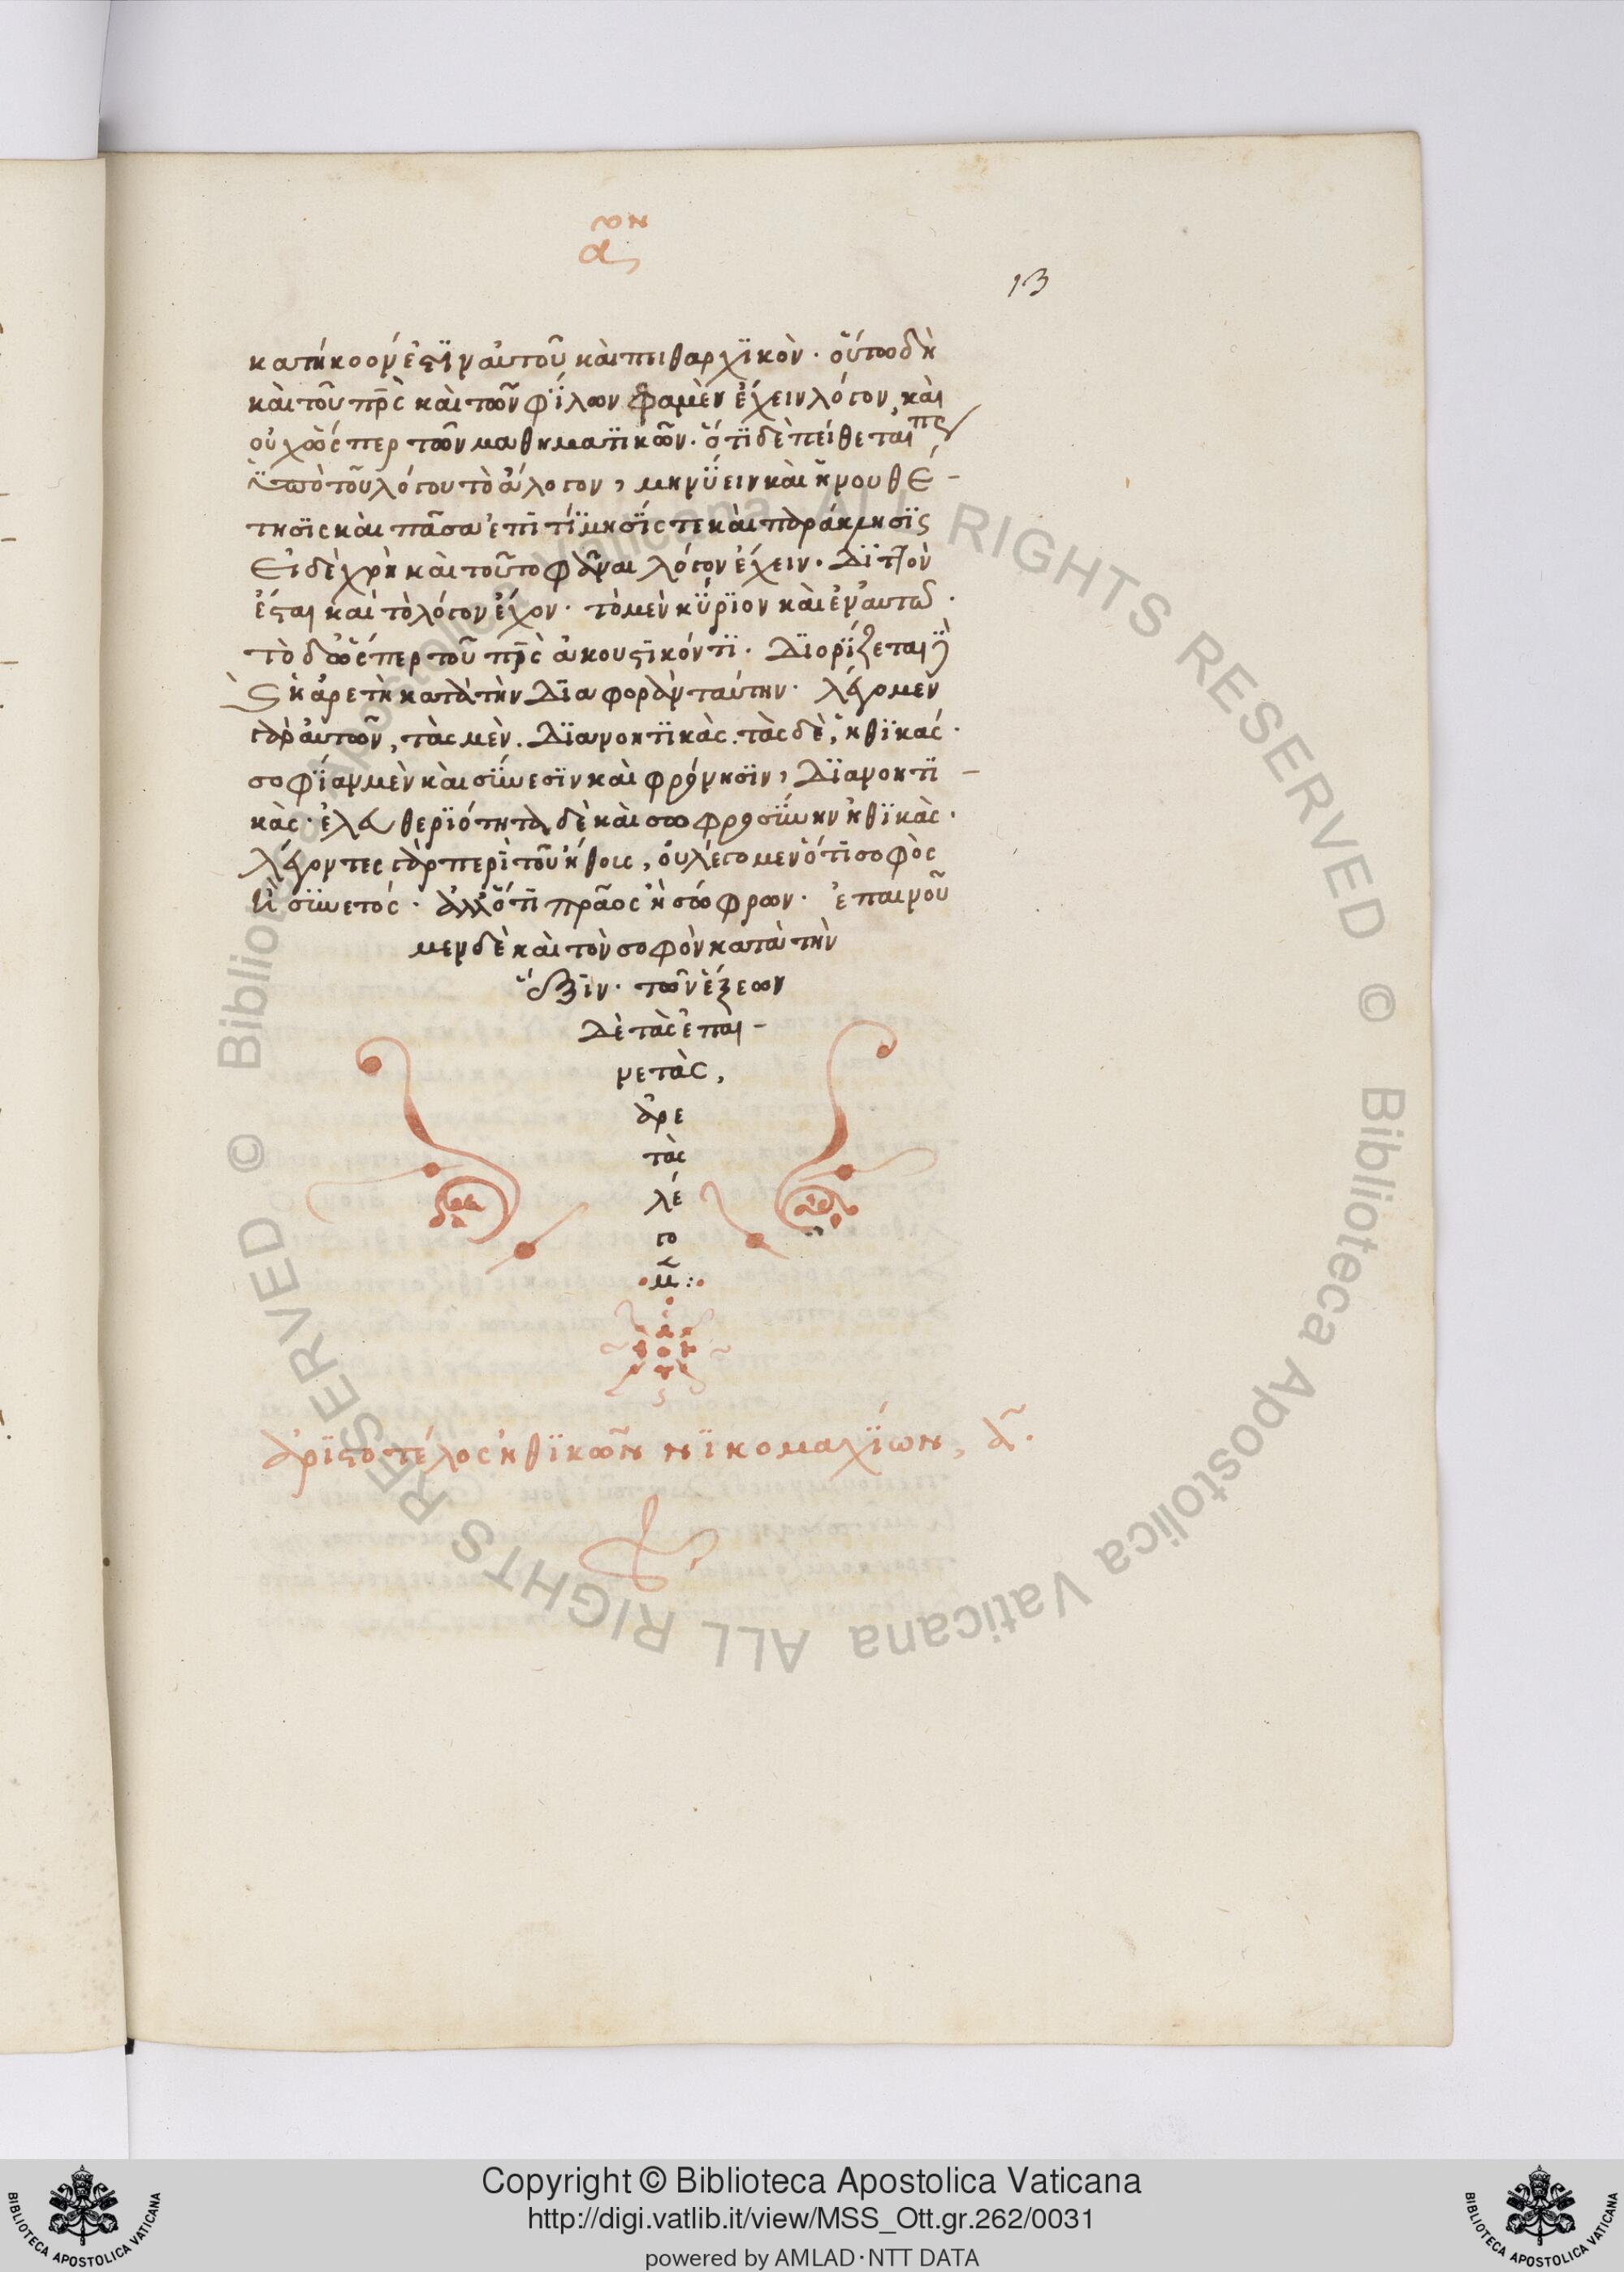 ον
α
13
κατήκοον ἐστϊν αὐτοῦ καὶ πειθαρχϊκὸν. οὕτω δὴ
καὶ τοῦ πρ̅ς καὶ τῶν φΐλων φαμὲν ἔχειν λόγον, καὶ
οὐχ ὥσπερ τῶν μαθηματϊκῶν. ὅτϊ δὲ πείθεταί πς
ὑπὸ τοῦ λόγου τὸ ἄλογον, μηνΰειν καὶ ἡ νουθέ-
τησϊς καὶ πᾶσα ἐπιτΐμησΐς τε καὶ παράκλησϊς
Εἰ δὲ χρὴ καὶ τοῦτο φάναι λόγον ἔχειν. Διττὸν
ἔσται καὶ τὸ λόγον ἔχον. τὸ μὲν κΰρϊον καὶ ἐν αυτῶ.
τὸ δ ὥσπερ τοῦ πρ̅ς ἀκουστϊκόν τϊ. Διορΐζεται
δὲ ἡ ἀρετὴ κατὰ τὴν Διαφορὰν ταύτην. λέγομεν
γὰρ αὐτῶν, τὰς μὲν. Διανοητϊκὰς. τὰς δὲ, ἠθϊκάς.
σοφΐαν μὲν καὶ σΰνεσϊν καὶ φρόνησϊν, Διανοητϊ-
κὰς. ἐλευθερϊότητα δὲ καὶ σωφροσΰνην ἠθϊκὰς.
λέγοντες γὰρ περὶ τοῦ ἤθους, οὐ λέγομεν ὅτϊ σοφὸς
ἢ σϋνετός. ἀλλ ὅτϊ πρᾶος ἢ σώφρων. ἐπαινοῦ
μεν δὲ καὶ τὸν σοφὸν κατὰ τὴν
ἕξϊν. τῶν ἕξεων
Δὲ τὰς ἐπαι-
νετὰς,
ἀρε
τὰς
λέ
γο
μ̅:
ἀρϊστοτέλος ἠθϊκῶν νϊκομαχΐων, α῀.
Copyright © Biblioteca Apostolica Vaticana
http://digi.vatlib.it/view/MSS_Ott.gr.262/0031
powered by AMLAD·NTT DATA
BIBLIOTECA APOSTOLICA VATICANA
BIBLIOTECA APOSTOLICA VATICANA
© Biblioteca Apostolica Vaticana ALL RIGHTS RESERVED
© Biblioteca Apostolica Vaticana ALL RIGHTS RESERVED